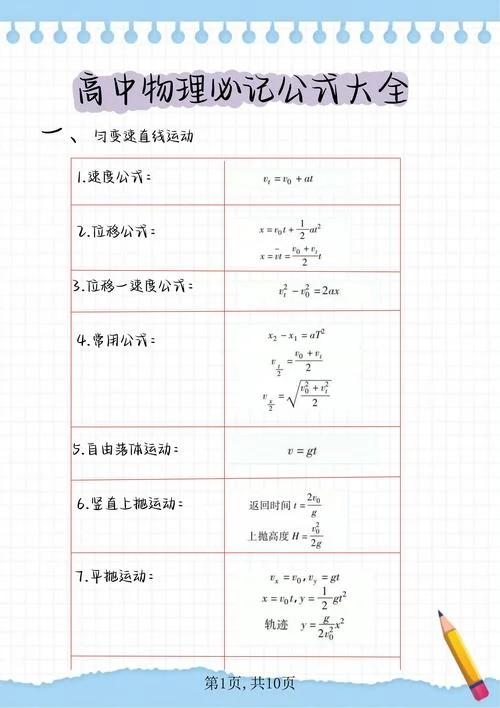 高中物理必记公式大全
一、匀变速直线运动
1.速度公式：
v_t=v_0+at
2.位移公式：
x=v_0t+\frac{1}{2}at^2
x=\bar{v}t=\frac{v_0+v_t}{2}t
3.位移一速度公式：
v_t^2-v_0^2=2ax
4.常用公式：
x_2-x_1=aT^2
v_{\frac{t}{2}}=\frac{v_0+v_t}{2}
v_{\frac{x}{2}}=\sqrt{\frac{v_0^2+v_t^2}{2}}
5.自由落体运动：
v=gt
6.竖直上抛运动：
返回时间 t=\frac{2v_0}{g}
上抛高度 H=\frac{v_0^2}{2g}
7.平抛运动：
v_x=v_0,v_y=gt
x=v_0t,y=\frac{1}{2}gt^2
轨迹 y=\frac{g}{2v_0^2}x^2
第1页,共10页